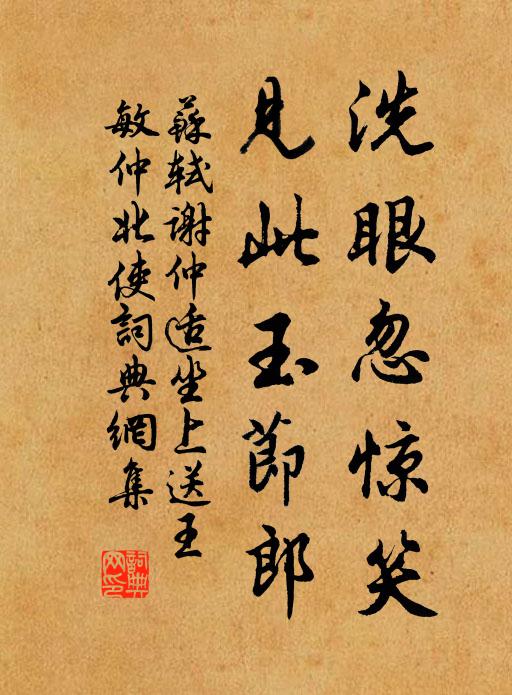 洗眼忽惊笑
見此玉節郎
蘇軾谢仲适坐上送王
敏仲北使詞典網集
詞典网印